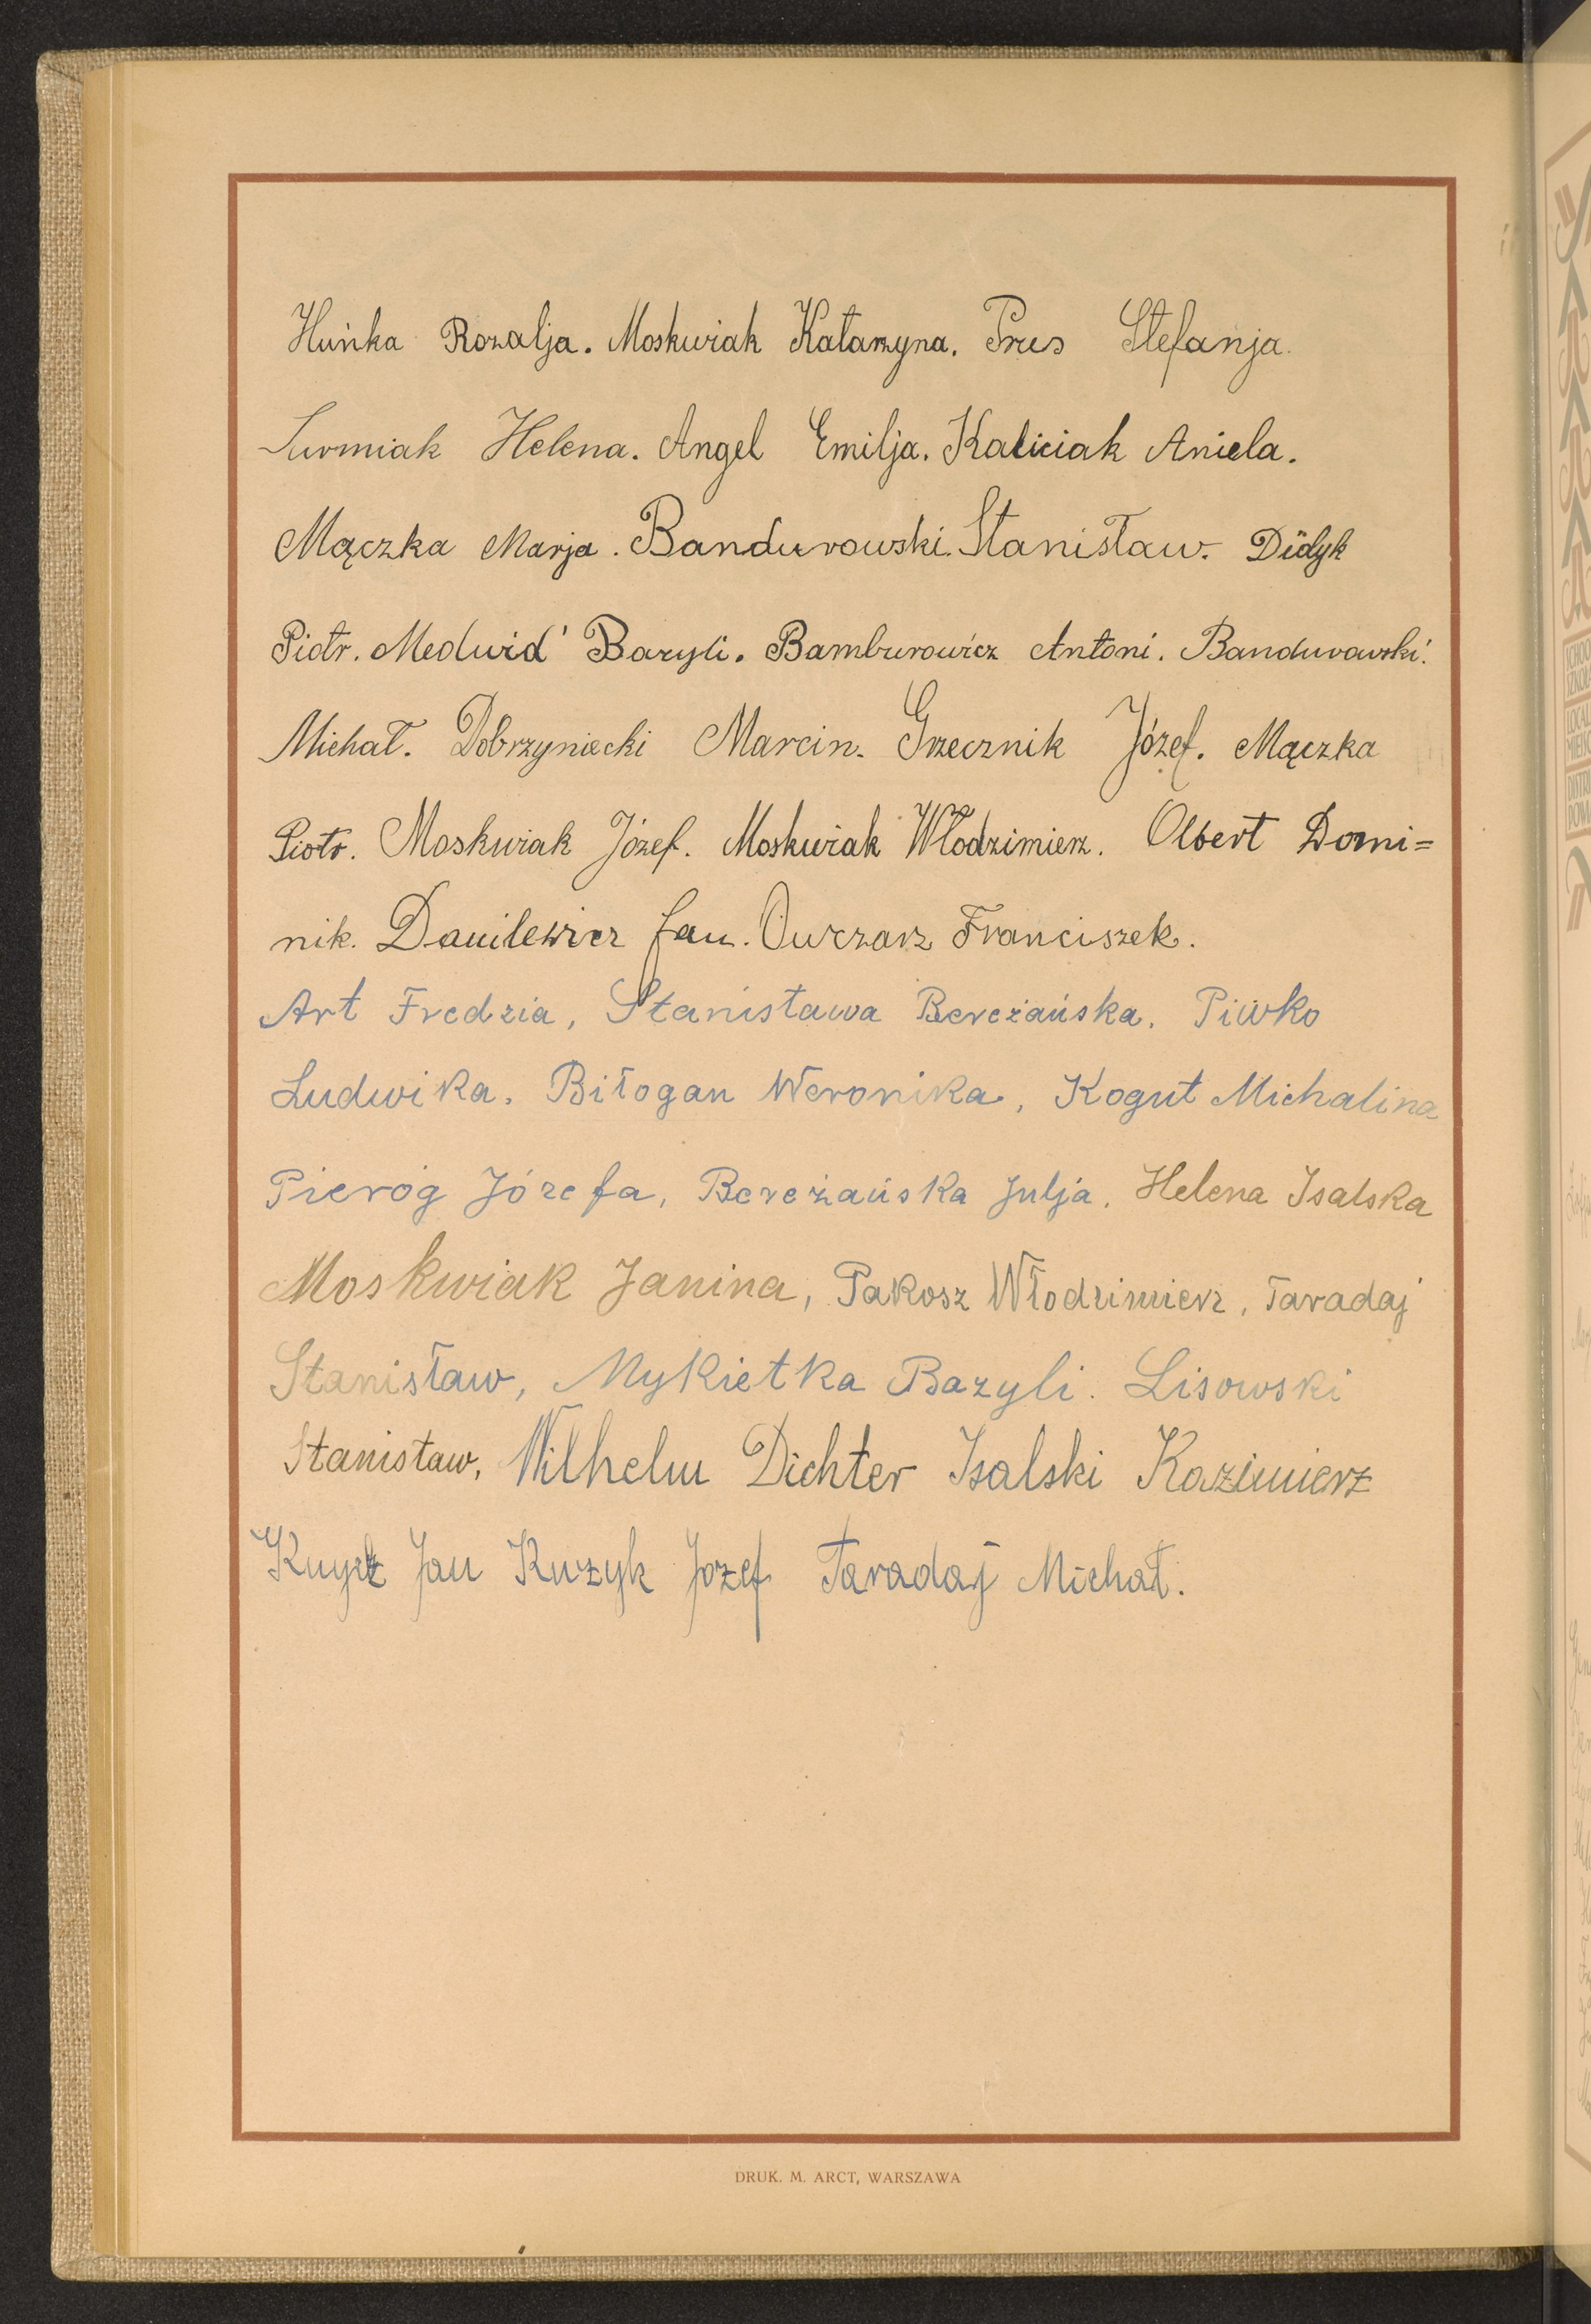 Huńka Rozalja. Moskwiak Katarzyna. Prus Stefanja.
Surmiak Helena. Angel Emilja. Kaliciak Aniela.
Mączka Marja. Bandurowski Stanisław. Didyk
Piotr. Medwid' Bazyli. Bamburowicz Antoni. Bandurowski
Michał. Dobrzyniecki Marcin. Grzecznik Józef. Mączka
Piotr. Moskwiak Józef. Moskwiak Włodzimierz. Olbert Domi=
nik. Danilewicz Jan. Owczarz Franciszek.
Art Fredzia, Stanisława Bereżańska. Piwko
Ludwika. Biłogan Weronika, Kogut Michalina
Pieróg Józefa, Bereżańska Julja. Helena Isalska
Moskwiak Janina, Pakosz Włodzimierz, Taradaj
Stanisław, Mykietka Bazyli. Lisowski
Stanisław, Wilhelm Dichter Isalski Kazimierz
Jan Kuzyk Józef Taradaj Michał.
DRUK. M. ARCT, WARSZAWA